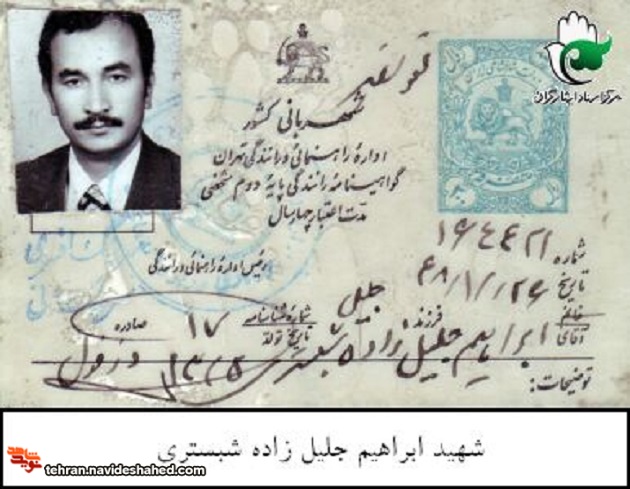 تعویض
شهربانی کشور
اداره راهنمائی و رانندگی تهران
گواهینامه رانندگی پایه دوم شخصی
مدت اعتبار چهار سال
رئیس اداره راهنمائی و رانندگی
شماره ۱۶۴۴۲۱
تاریخ ۴۸/۱/۲۶
خانم
آقای ابراهیم جلیل زاده شبستری
فرزند جلیل
شماره شناسنامه ۱۷ صادره دزفول
تاریخ تولد ۱۳۲۵
توضیحات:
مرکز اسناد ایثارگران
شهید ابراهیم جلیل زاده شبستری
نوید شاهد
tehran.navideshahed.com